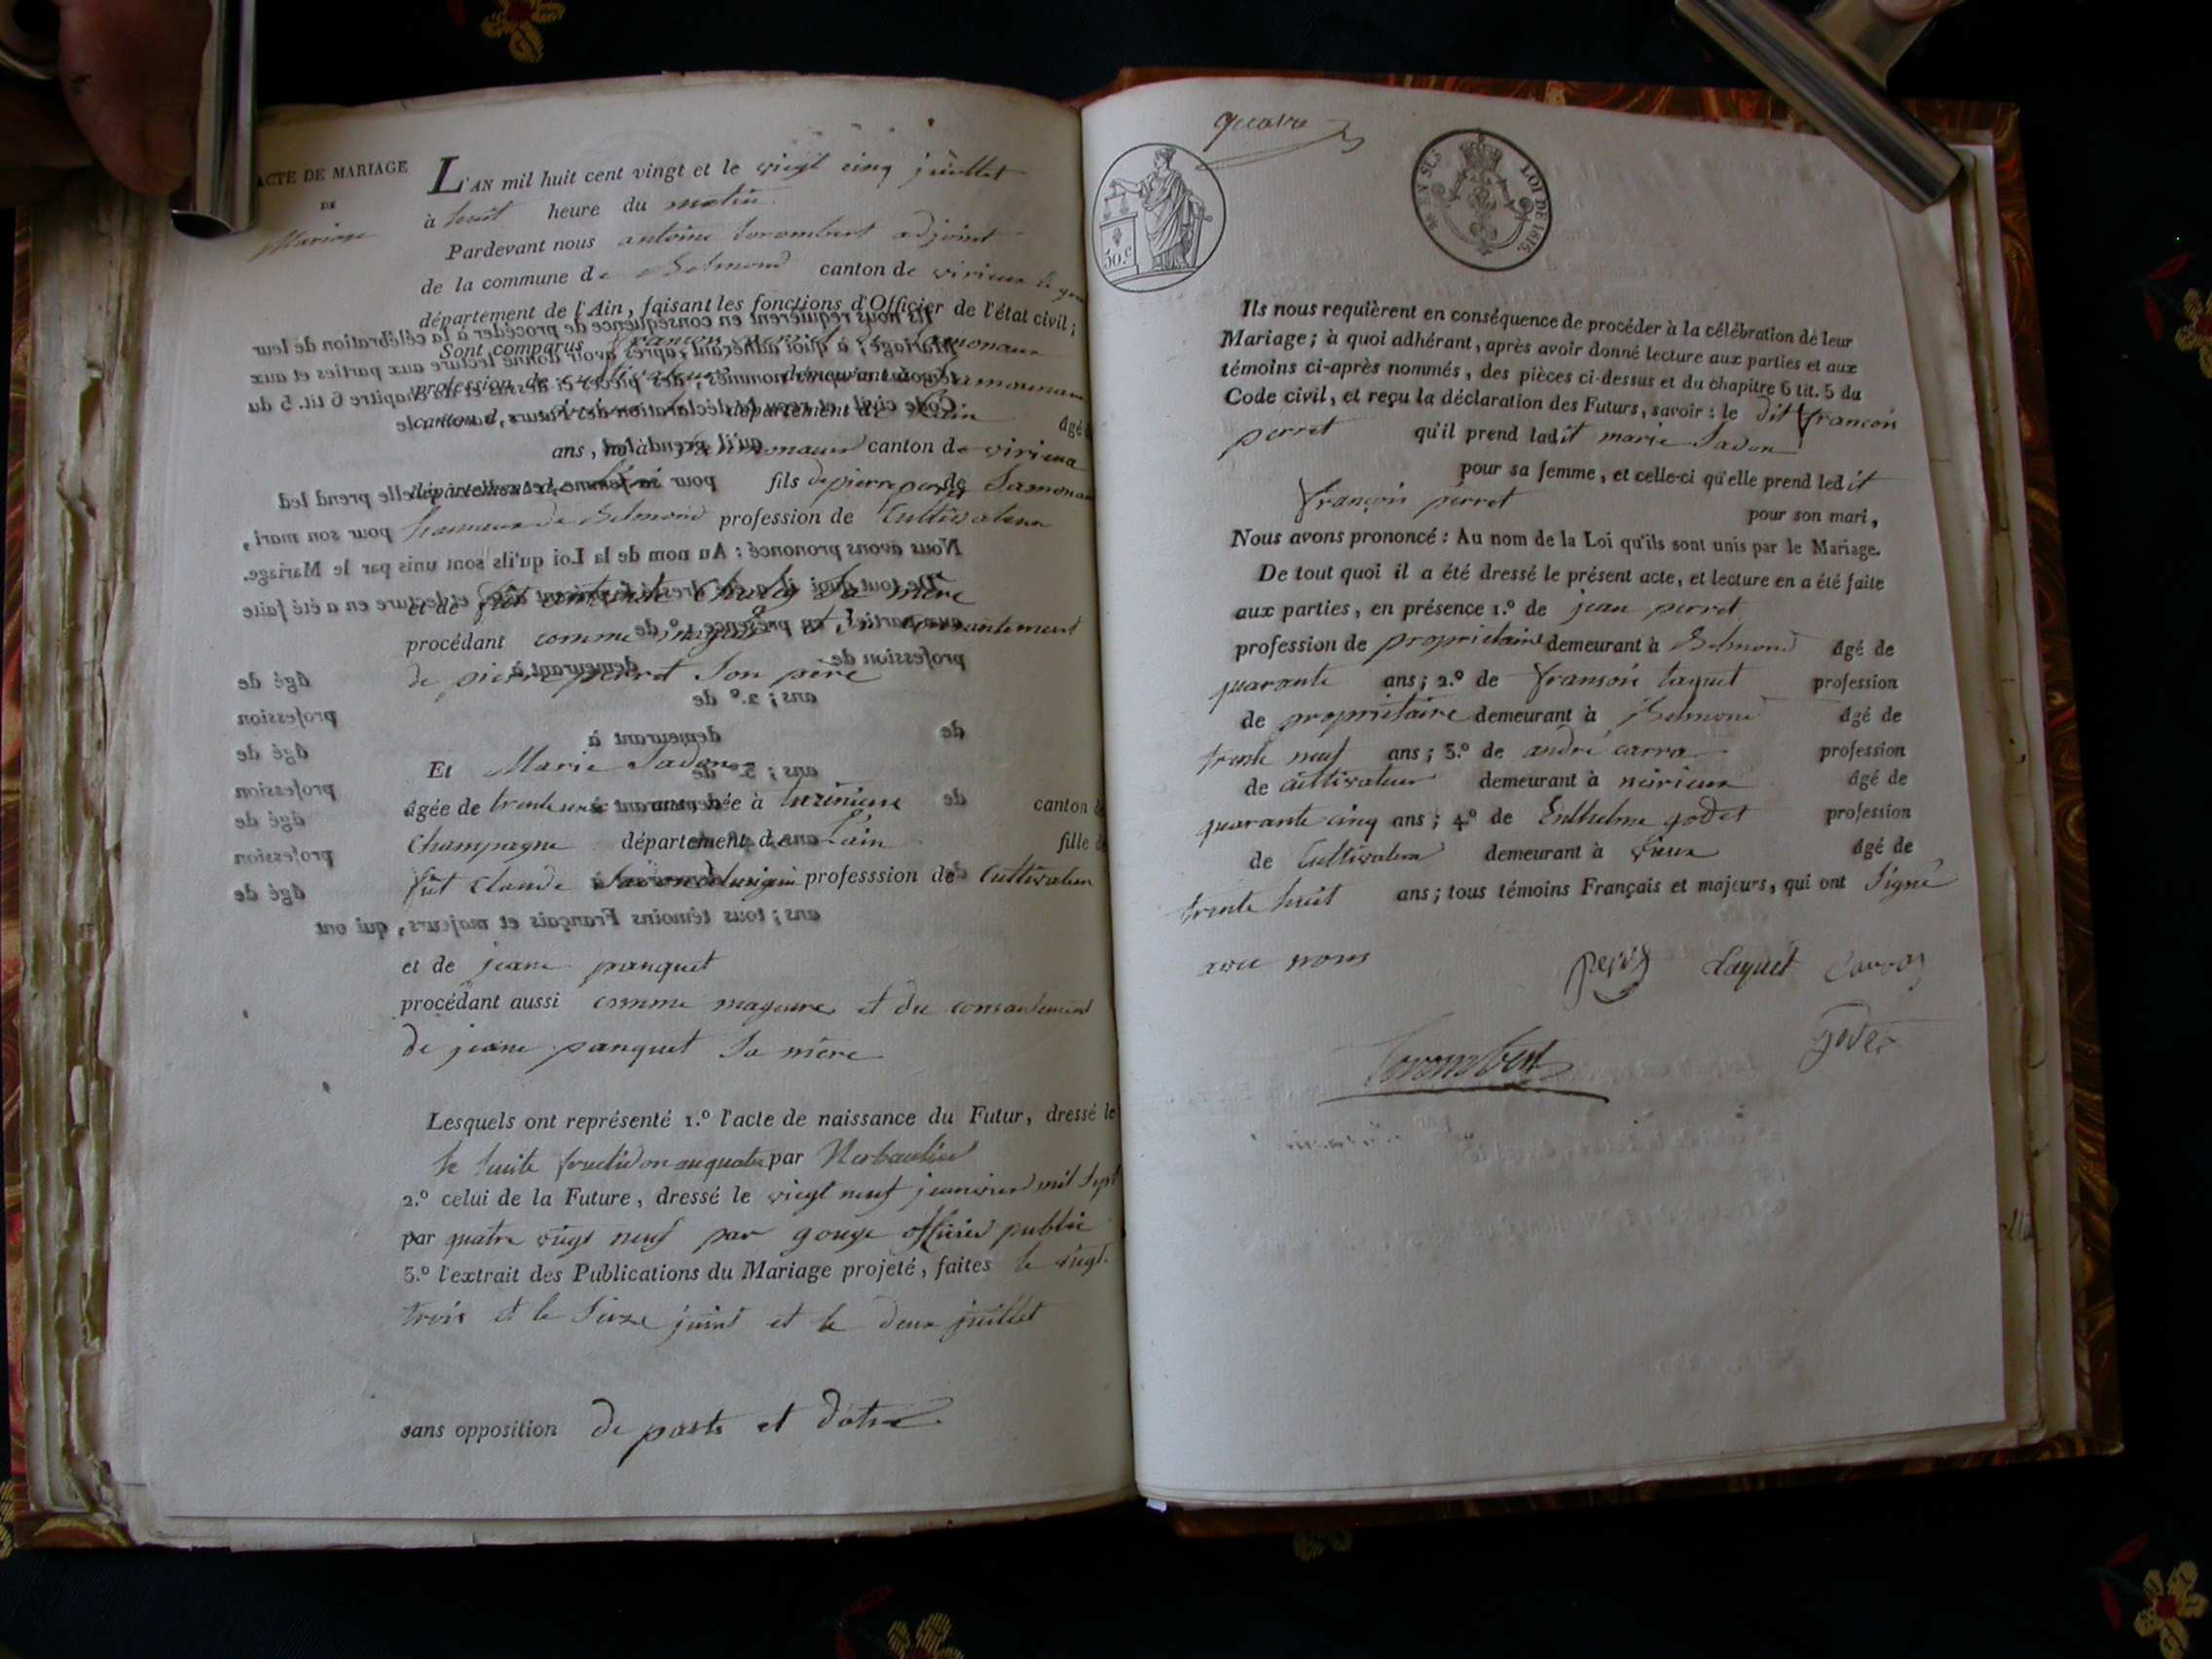 ACTE DE MARIAGE
DE
Mariage
L'AN mil huit cent vingt et le vingt cinq juillet
à huit heure du matin.
Pardevant nous antoine torombert adjoint
de la commune de Belmond canton de virieux le
département de l'Ain, faisant les fonctions d'Officier de l'état civil;
Sont comparus françois perret
profession de cultivateur demeurant à
canton d département de
ans, canton de virieux
département d fils de pierre perret de Samonau
hameau de Belmond profession de Cultivateur
et de fut sa mère
procédant comme majeur
de pierre perret Son père
Et Marie Sadon
âgée de trente née à canton
Champagne département de L'ain fille
fut Claude professsion de Cultivateur
et de jeane panquet
procédant aussi comme mageure et du consantement
de jeane panquet Sa mère
Lesquels ont représenté 1.º l'acte de naissance du Futur, dressé le
le huite fructidor an quatre par
2.º celui de la Future, dressé le vingt neuf jeanvier mil Sept
par quatre vingt neuf par gouge officier public
3.º l'extrait des Publications du Mariage projeté, faites le vingt
trois et le juint et le deux juillet
sans opposition de parts et dotre
quatre
30.c
LOI DE 1816.
Ils nous requièrent en conséquence de procéder à la célébration de leur
Mariage; à quoi adhérant, après avoir donné lecture aux parties et aux
témoins ci-après nommés, des pièces ci-dessus et du chapitre 6 tit. 5 du
Code civil, et reçu la déclaration des Futurs, savoir: le dit francois
perret qu'il prend ladit marie Sadon
pour sa femme, et celle-ci qu'elle prend ledit
françois perret pour son mari,
Nous avons prononcé: Au nom de la Loi qu'ils sont unis par le Mariage.
De tout quoi il a été dressé le présent acte, et lecture en a été faite
aux parties, en présence 1.º de jean perret
profession de proprietaire demeurant à Belmond âgé de
quarante ans; 2.º de fransois taquet profession
de propriétaire demeurant à Belmond âgé de
trente neuf ans; 3.º de andré carra profession
de cultivateur demeurant à âgé de
quarante cinq ans; 4.º de Enthelme godet profession
de Cultivateur demeurant à vieux âgé de
trente huit ans; tous témoins Français et majeurs, qui ont Signé
avec nous Laquet Carra
godet
Torombert